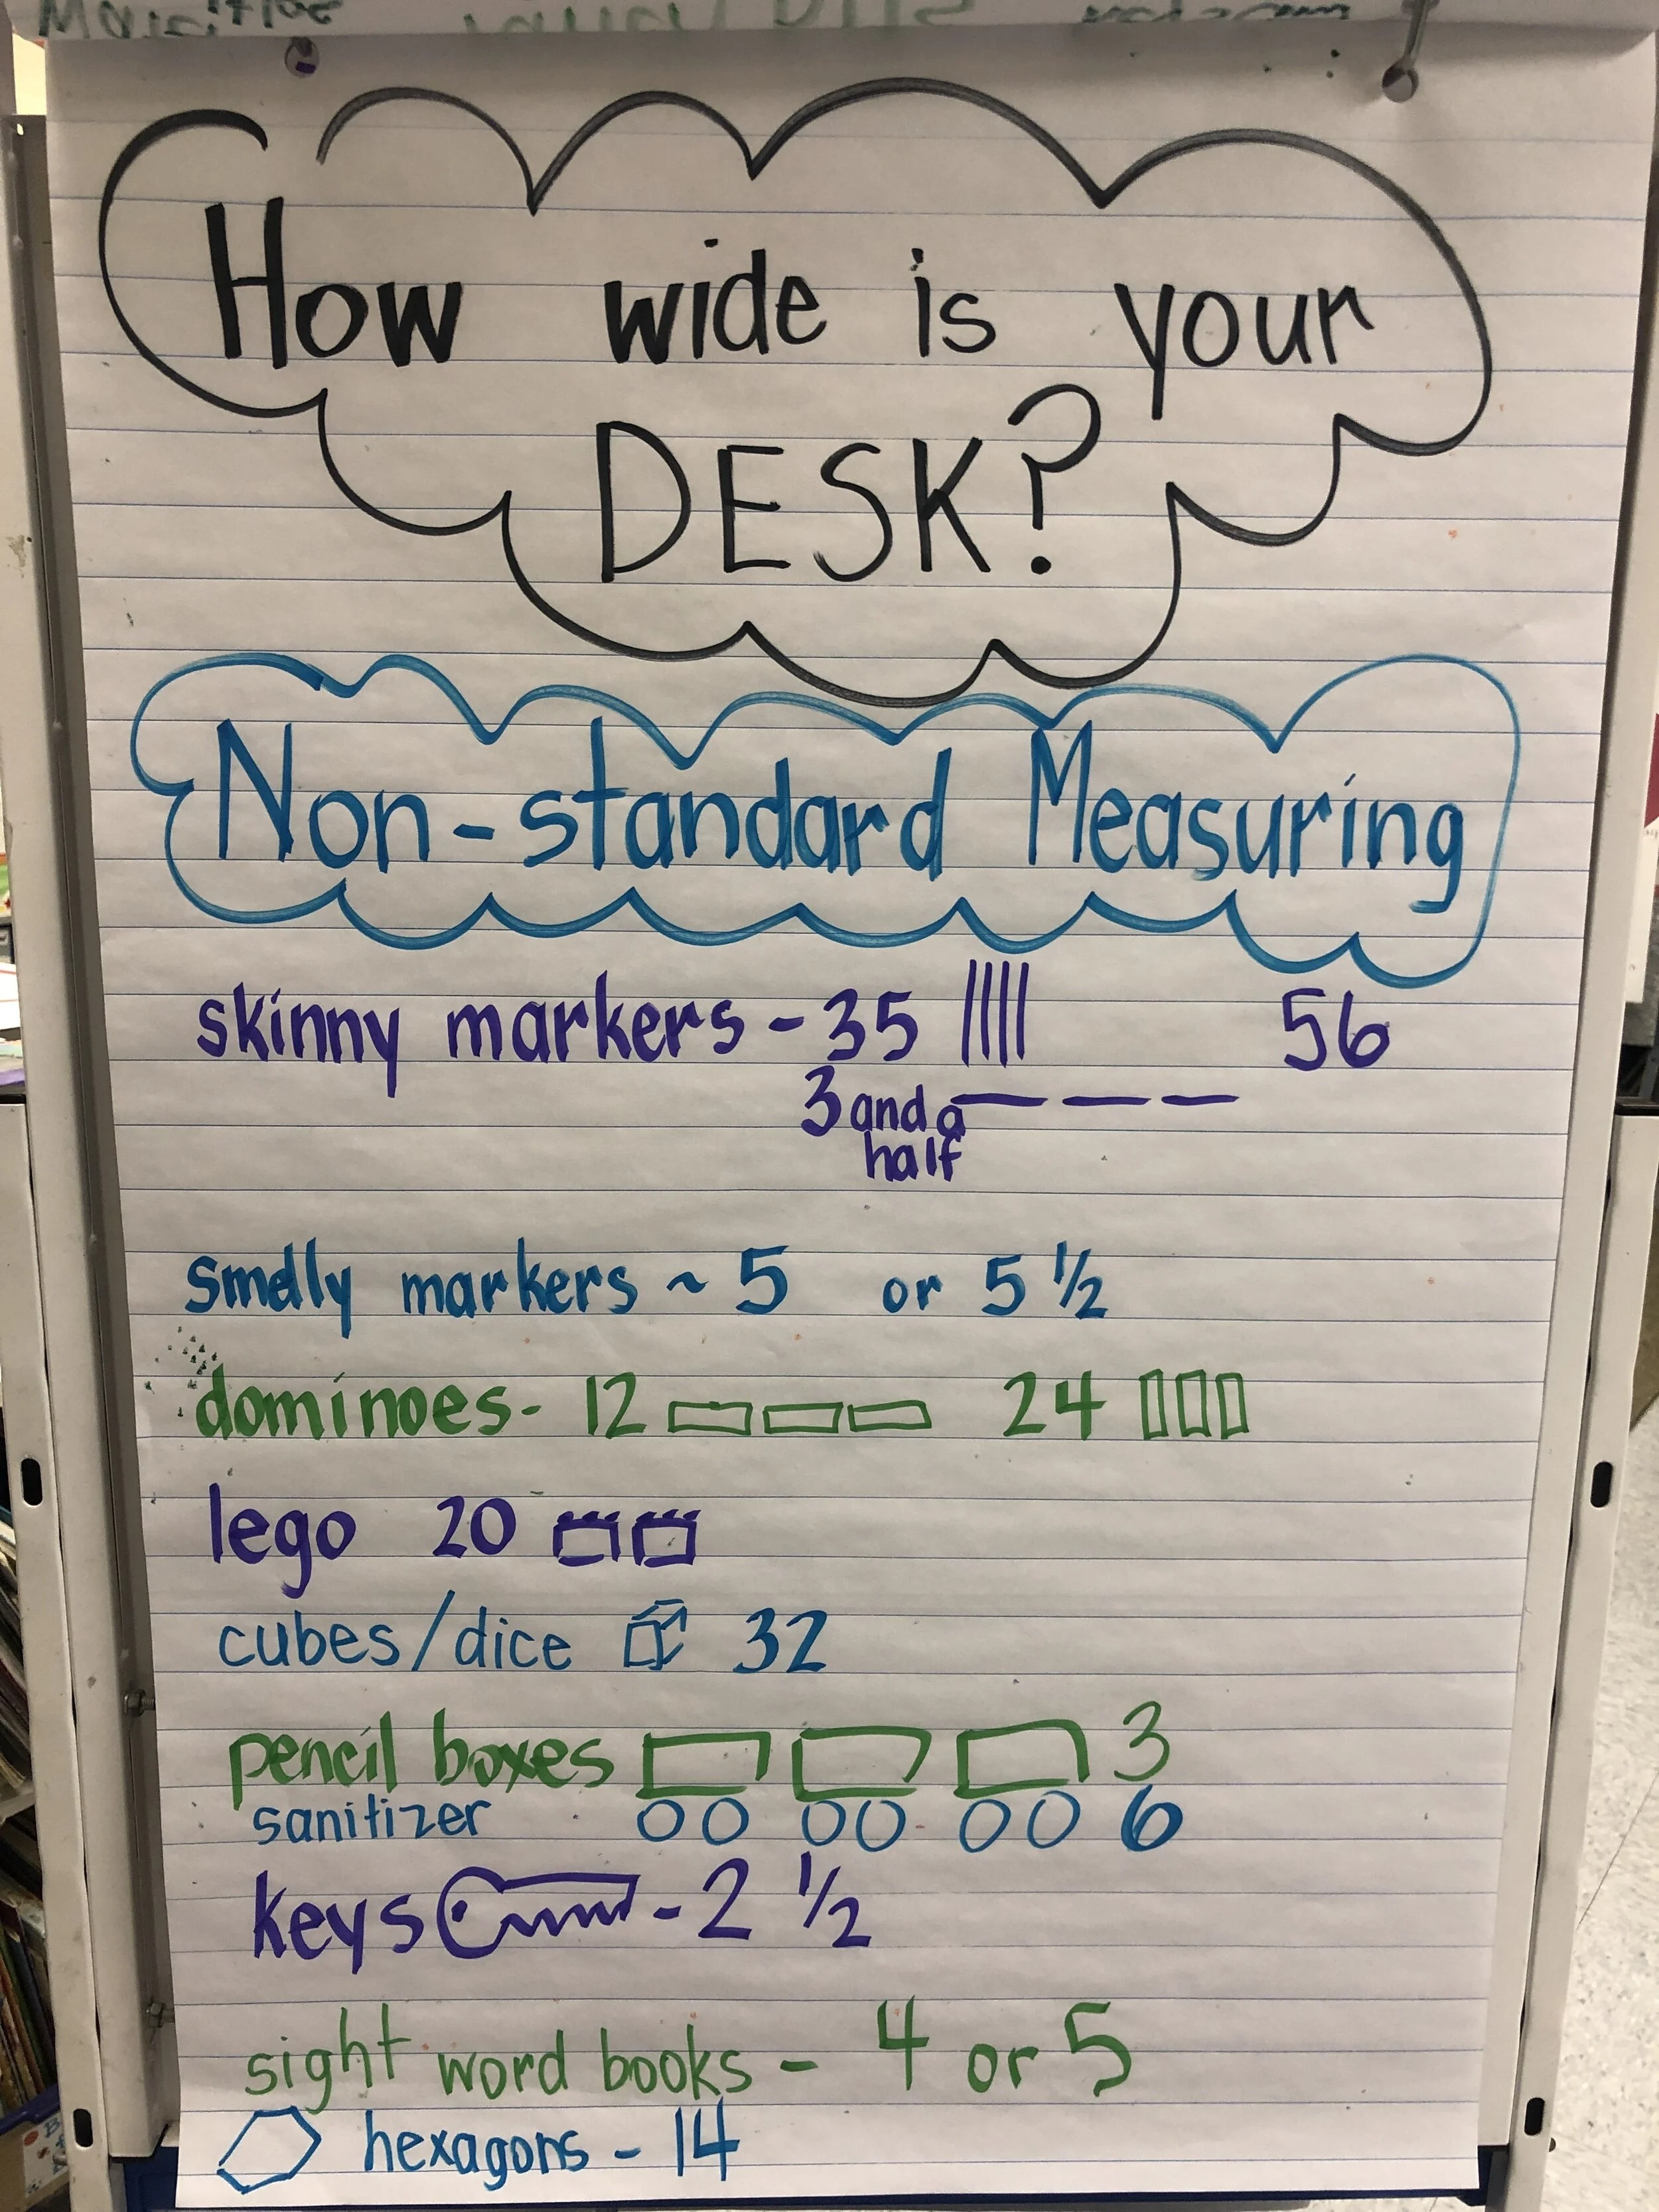 How wide is your
DESK?
Non-standard Measuring
skinny markers - 35 56
3 and a
half
smelly markers ~ 5 or 5 ½
dominoes - 12 24
lego 20
cubes/dice 32
pencil boxes 3
sanitizer 6
keys - 2 ½
sight word books - 4 or 5
hexagons - 14